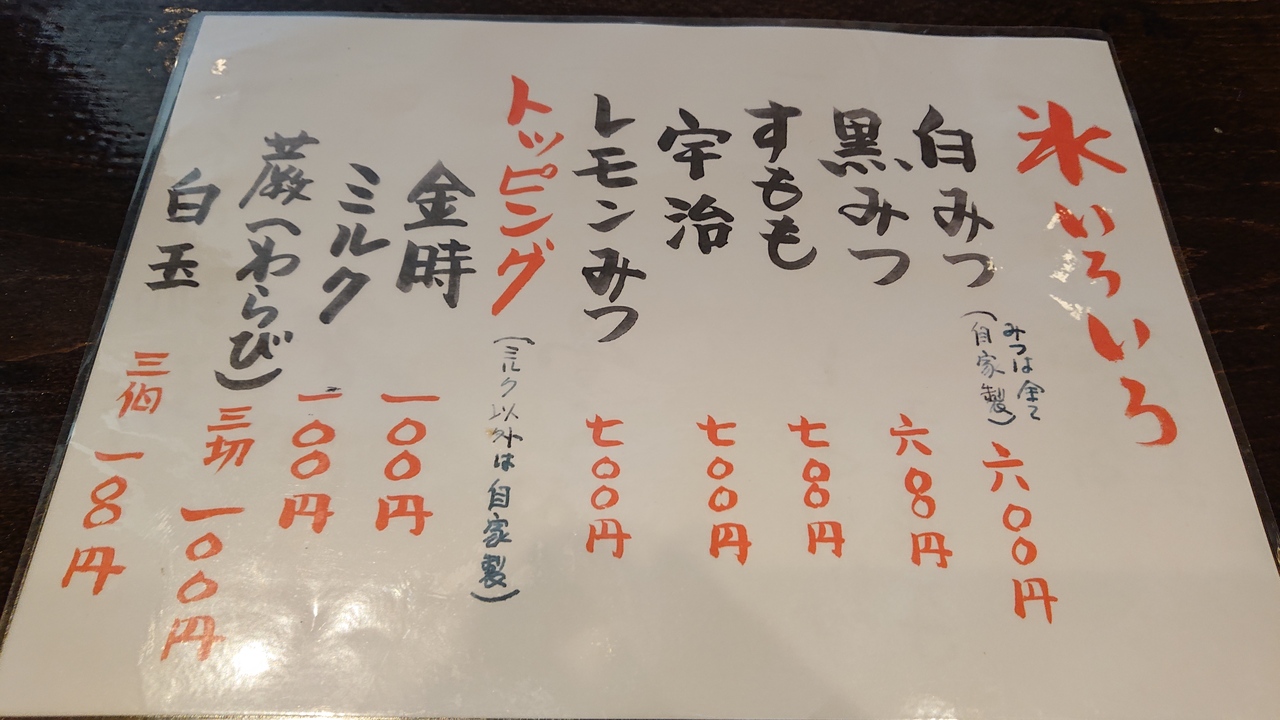 氷いろいろ
(みつは全て
自家製)
白みつ 六〇〇円
黒みつ 六〇〇円
すもも 七〇〇円
宇治 七〇〇円
レモンみつ 七〇〇円
トッピング (ミルク以外は自家製)
金時 一〇〇円
ミルク 一〇〇円
蕨(わらび) 三切 一〇〇円
白玉 三個 一〇〇円